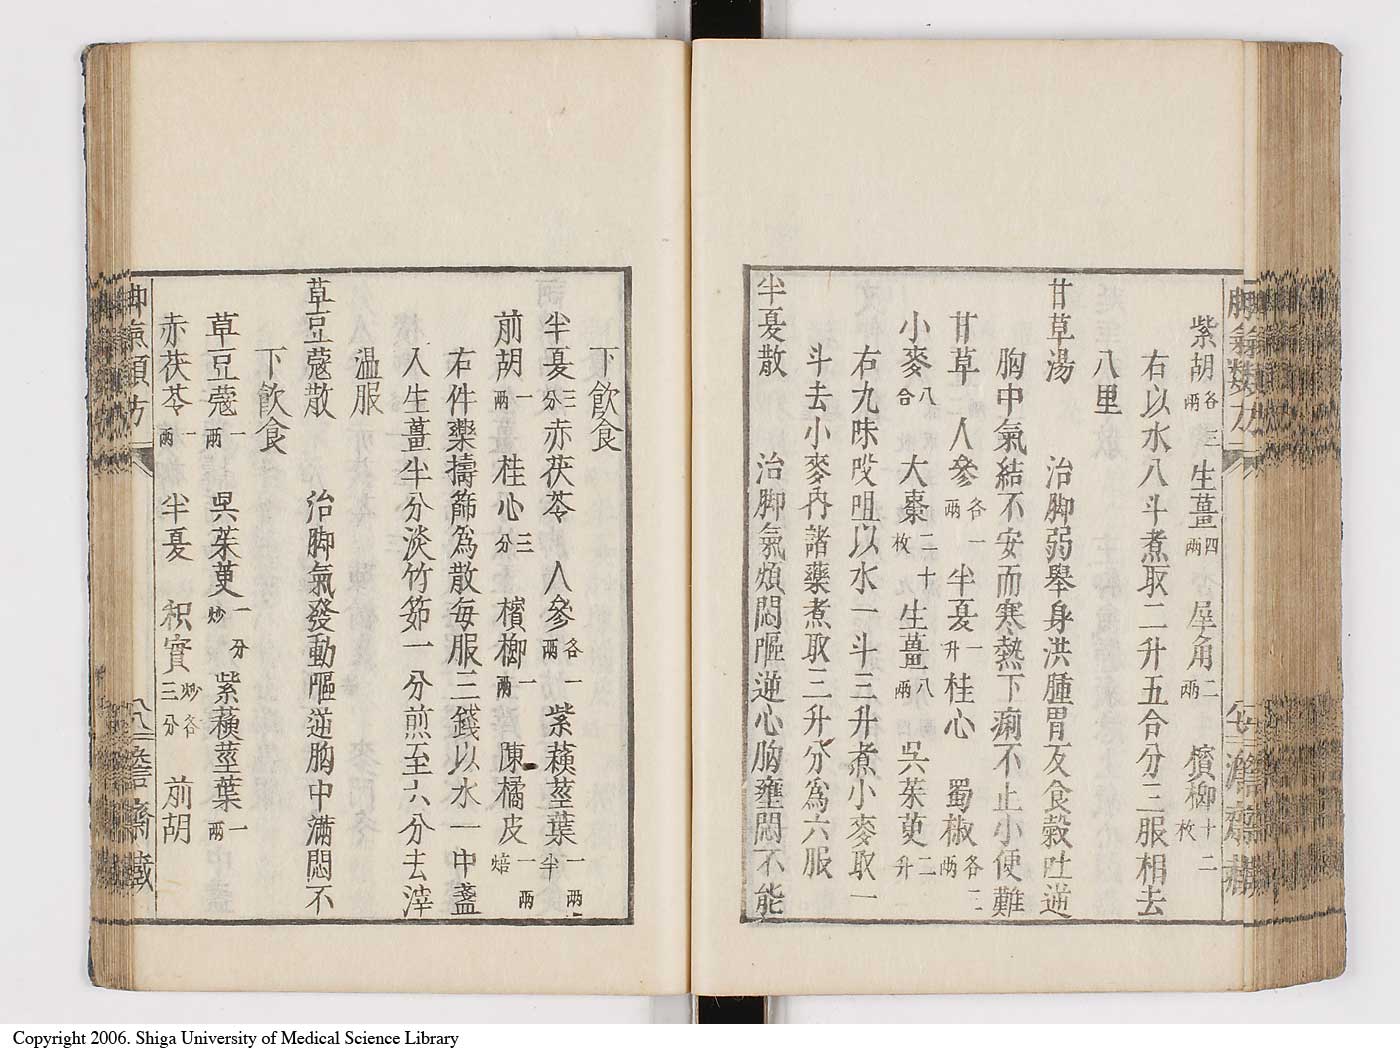 紫胡各三兩 生薑四兩 犀角二兩 檳榔十二枚
右以水八斗煮取二升五合分三服相去
八里
甘草湯 治脚弱舉身洪腫胃反食穀吐逆
胸中氣結不安而寒熱下痢不止小便難
甘草 人參各一兩 半夏一升 桂心 蜀椒各二兩
小麥八合 大棗二十枚 生薑八兩 吳茱萸二升
右九味㕮咀以水一斗三升煮小麥取一
斗去小麥內諸藥煮取三升分爲六服
半夏散 治脚氣煩悶嘔逆心胸壅悶不能
下飲食
半夏三分 赤茯苓 人參各一兩 紫蘓莖葉一兩半
前胡一兩 桂心三分 檳榔一兩 陳橘皮一兩焙
右件藥擣篩爲散每服三錢以水一中盞
入生薑半分淡竹茹一分煎至六分去滓
温服
草豆蔻散 治脚氣發動嘔逆胸中滿悶不
下飲食
草豆蔻一兩 吳茱萸一分炒 紫蘓莖葉一兩
赤茯苓一兩 半夏 枳實炒各三分 前胡
脚氣類方
Copyright 2006. Shiga University of Medical Science Library